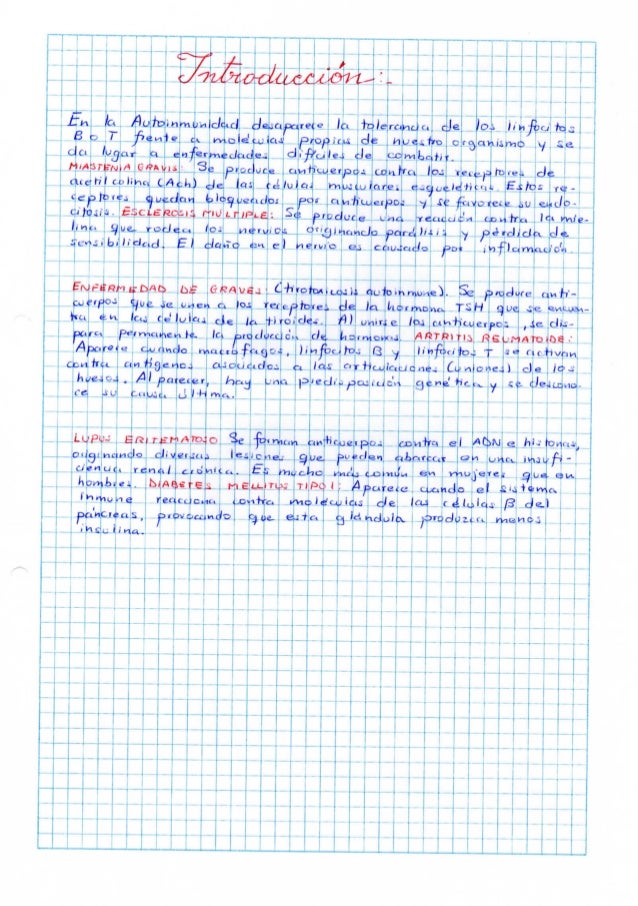 Introducción:-
En la Autoinmunidad desaparece la tolerancia de los linfocitos
B o T frente a moléculas propias de nuestro organismo y se
da lugar a enfermedades difíciles de combatir.
MIASTENIA GRAVIS: Se produce anticuerpos contra los receptores de
acetil colina (Ach) de las células musculares esqueléticas. Estos re-
ceptores quedan bloqueados por anticuerpos y se favorece su endo-
citosis. ESCLEROSIS MULTIPLE: Se produce una reacción contra la mie-
lina que rodea los nervios originando parálisis y pérdida de
sensibilidad. El daño en el nervio es causado por inflamación.
ENFERMEDAD DE GRAVES: (tirotoxicosis autoinmune). Se produce anti-
cuerpos que se unen a los receptores de la hormona TSH que se encuen-
tra en las células de la tiroides. Al unirse los anticuerpos, se dis-
para permanente la producción de hormonas. ARTRITIS REUMATOIDE:
Aparece cuando macrófagos, linfocitos B y linfocitos T se activan
contra antígenos asociados a las articulaciones (uniones) de los
huesos. Al parecer, hay una predisposición genética y se descono-
ce su causa última.
LUPUS ERITEMATOSO Se forman anticuerpos contra el ADN e histonas,
originando diversas lesiones que pueden abarcar en una insufi-
ciencia renal crónica. Es mucho más común en mujeres que en
hombres. DIABETES MELLITUS TIPO I: Aparece cuando el sistema
inmune reacciona contra moléculas de las células β del
páncreas, provocando que esta glándula produzca menos
insulina.